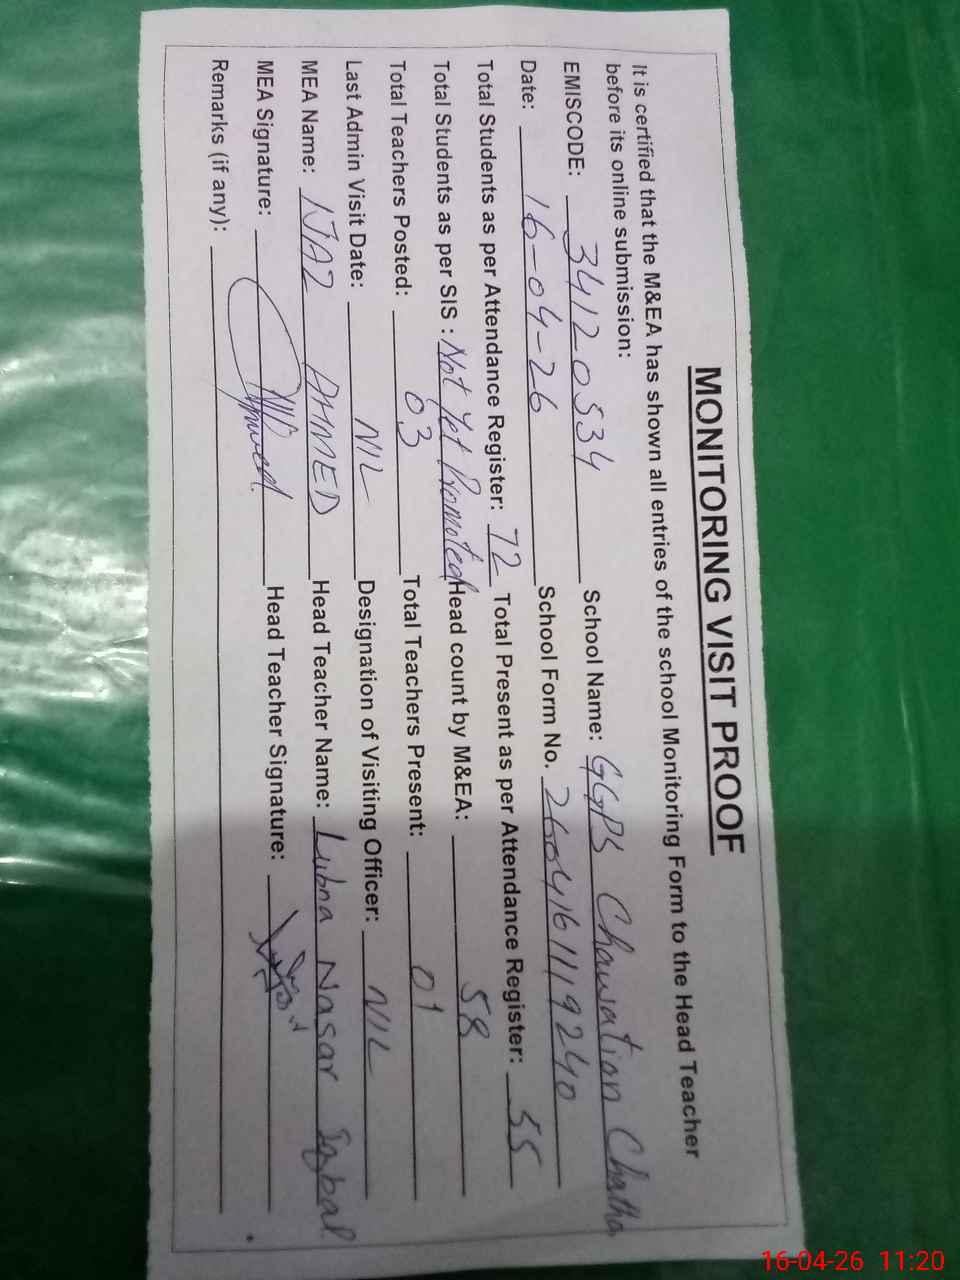 MONITORING VISIT PROOF
It is certified that the M&EA has shown all entries of the school Monitoring Form to the Head Teacher
before its online submission:
EMISCODE: 34120534 School Name: GGPS Chawation Chatha
Date: 16-04-26 School Form No. 2604161119240
Total Students as per Attendance Register: 72 Total Present as per Attendance Register: 55
Total Students as per SIS : Not Yet Promoted Head count by M&EA: 58
Total Teachers Posted: 03 Total Teachers Present: 01
Last Admin Visit Date: NIL Designation of Visiting Officer: NIL
MEA Name: IJAZ AHMED Head Teacher Name: Lubna Nasar Iqbal
MEA Signature: Head Teacher Signature:
Remarks (if any):
16-04-26 11:20